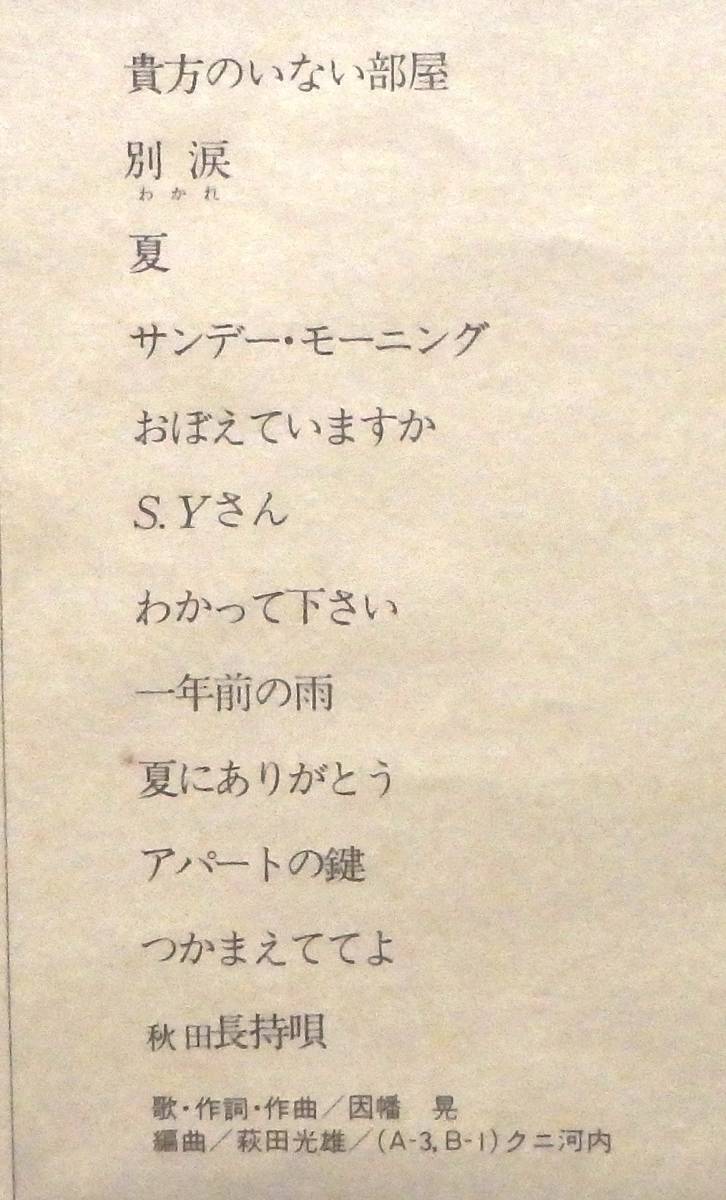 貴方のいない部屋
別涙
わかれ
夏
サンデー・モーニング
おぼえていますか
S.Yさん
わかって下さい
一年前の雨
夏にありがとう
アパートの鍵
つかまえててよ
秋田長持唄
歌・作詞・作曲／因幡 晃
編曲／萩田光雄／(A-3,B-1)クニ河内